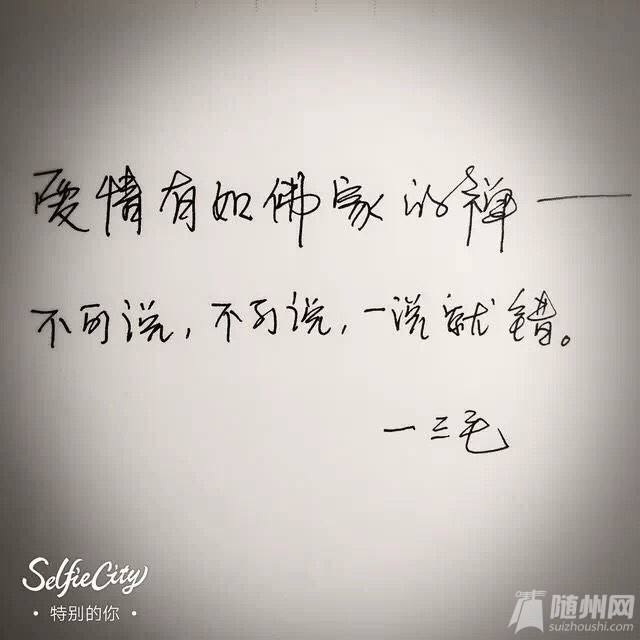 爱情有如佛家的禅——
不可说，不可说，一说就错。
—三毛
SelfieCity
·特别的你·
随州网
suizhoushi.com